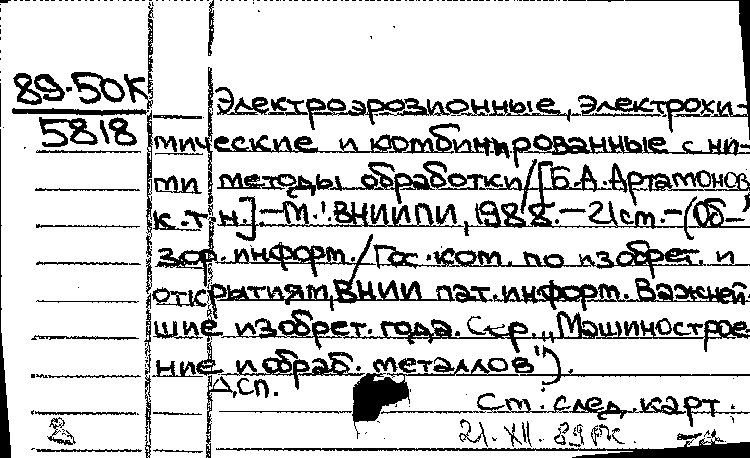 89-50К
5818
Электроэрозионные, электрохи-
мические и комбинированные с ни-
ми методы обработки/[Б.А.Артамонов,
к.т.н.]-М.:ВНИИПИ,1988.-21ст.-(Об-
зор.информ./Гос.ком.по изобрет. и
открытиям,ВНИИ пат.информ.Важней-
шие изобрет.года.Сер.„Машинострое-
ние и обраб.металлов").
Δ,сп.
См.след.карт.
21.XII.89